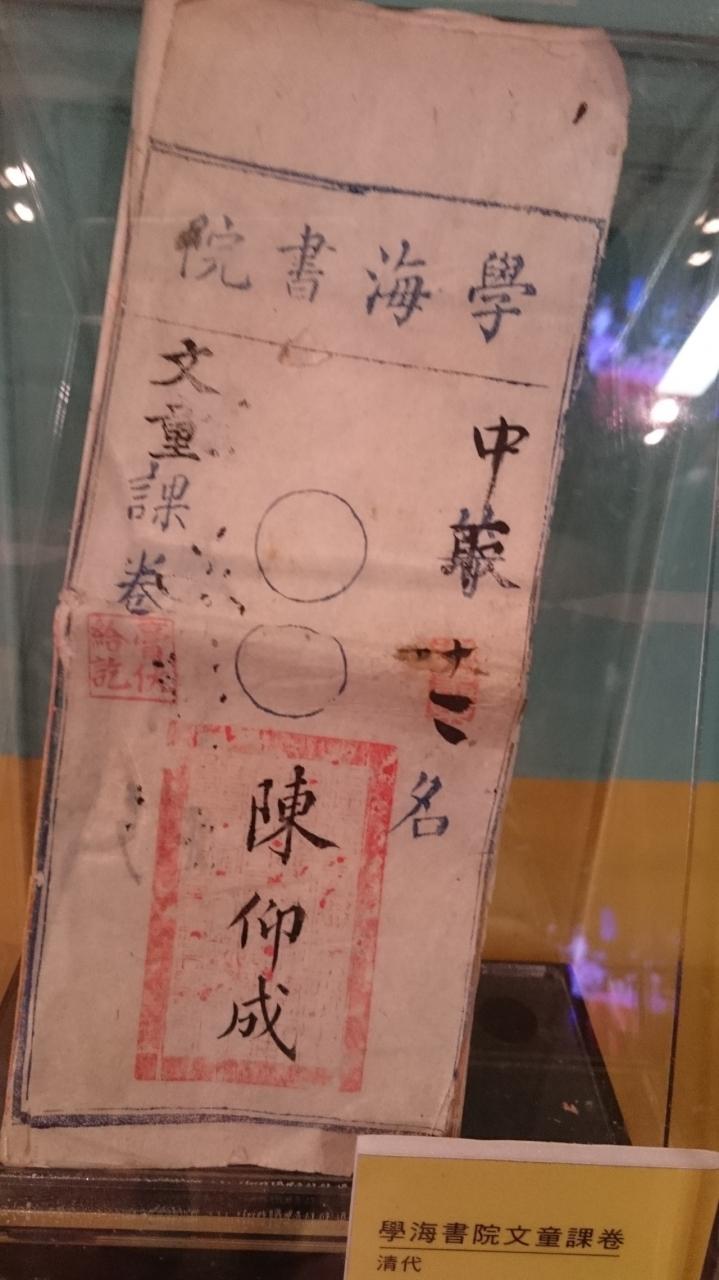 學海書院
中
二名
陳仰成
文童課卷
膏伙
給訖
學海書院文童課卷
清代